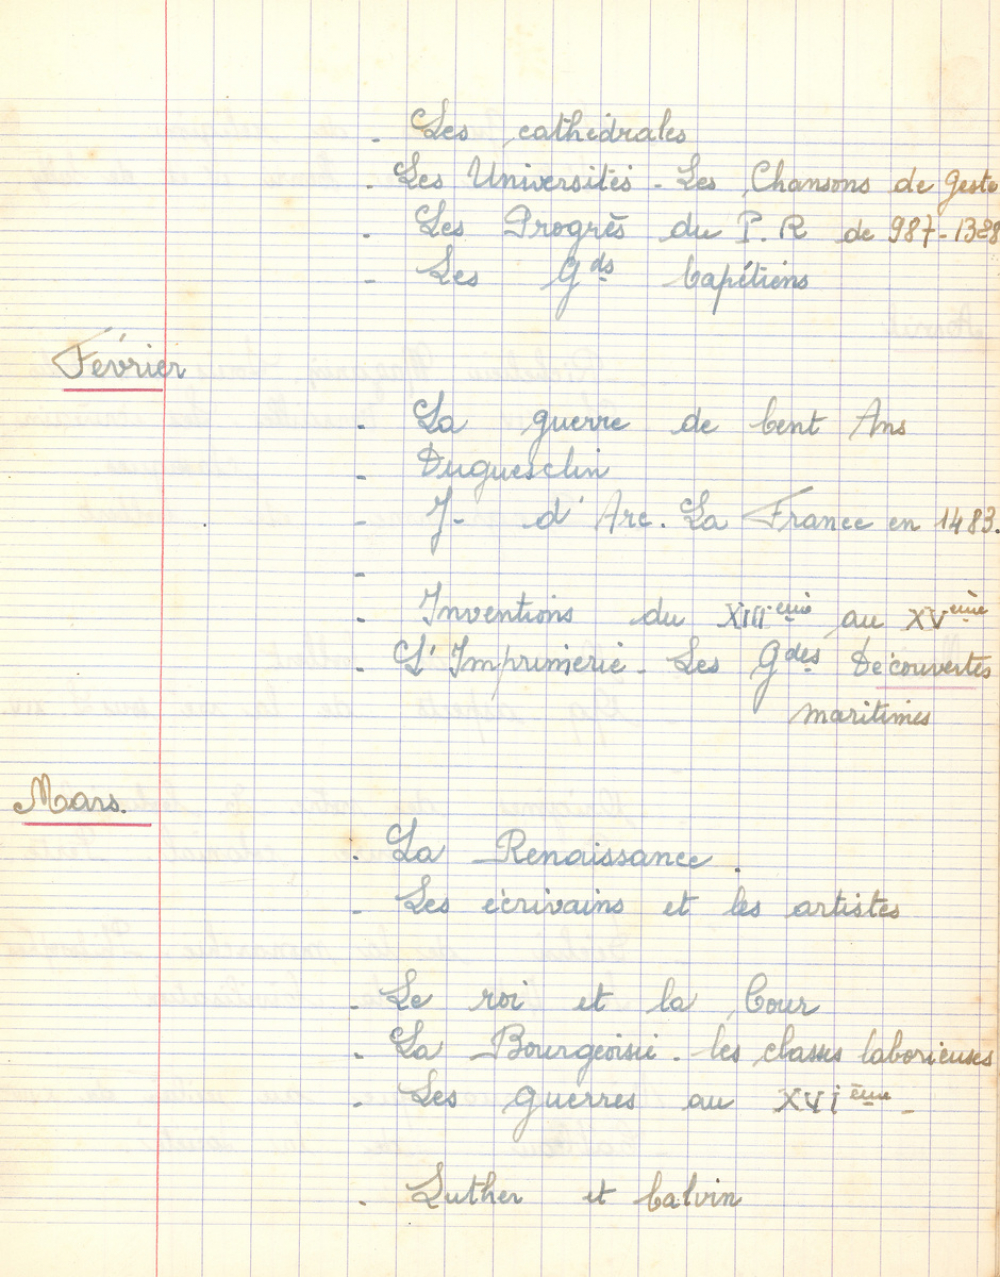 - Les cathédrales
- Les Universités - Les Chansons de Geste
- Les Progrès du P.R de 987-1328
- Les Gds Capétiens
Février
- La guerre de Cent Ans
- Duguesclin
- J- d'Arc. La France en 1483.
-
- Inventions du XIIIème au XVème
- L'Imprimerie - Les Gdes Découvertes
maritimes
Mars.
- La Renaissance.
- Les écrivains et les artistes
- Le roi et la Cour
- La Bourgeoisie - les classes laborieuses
- Les guerres au XVIème -
- Luther et Calvin